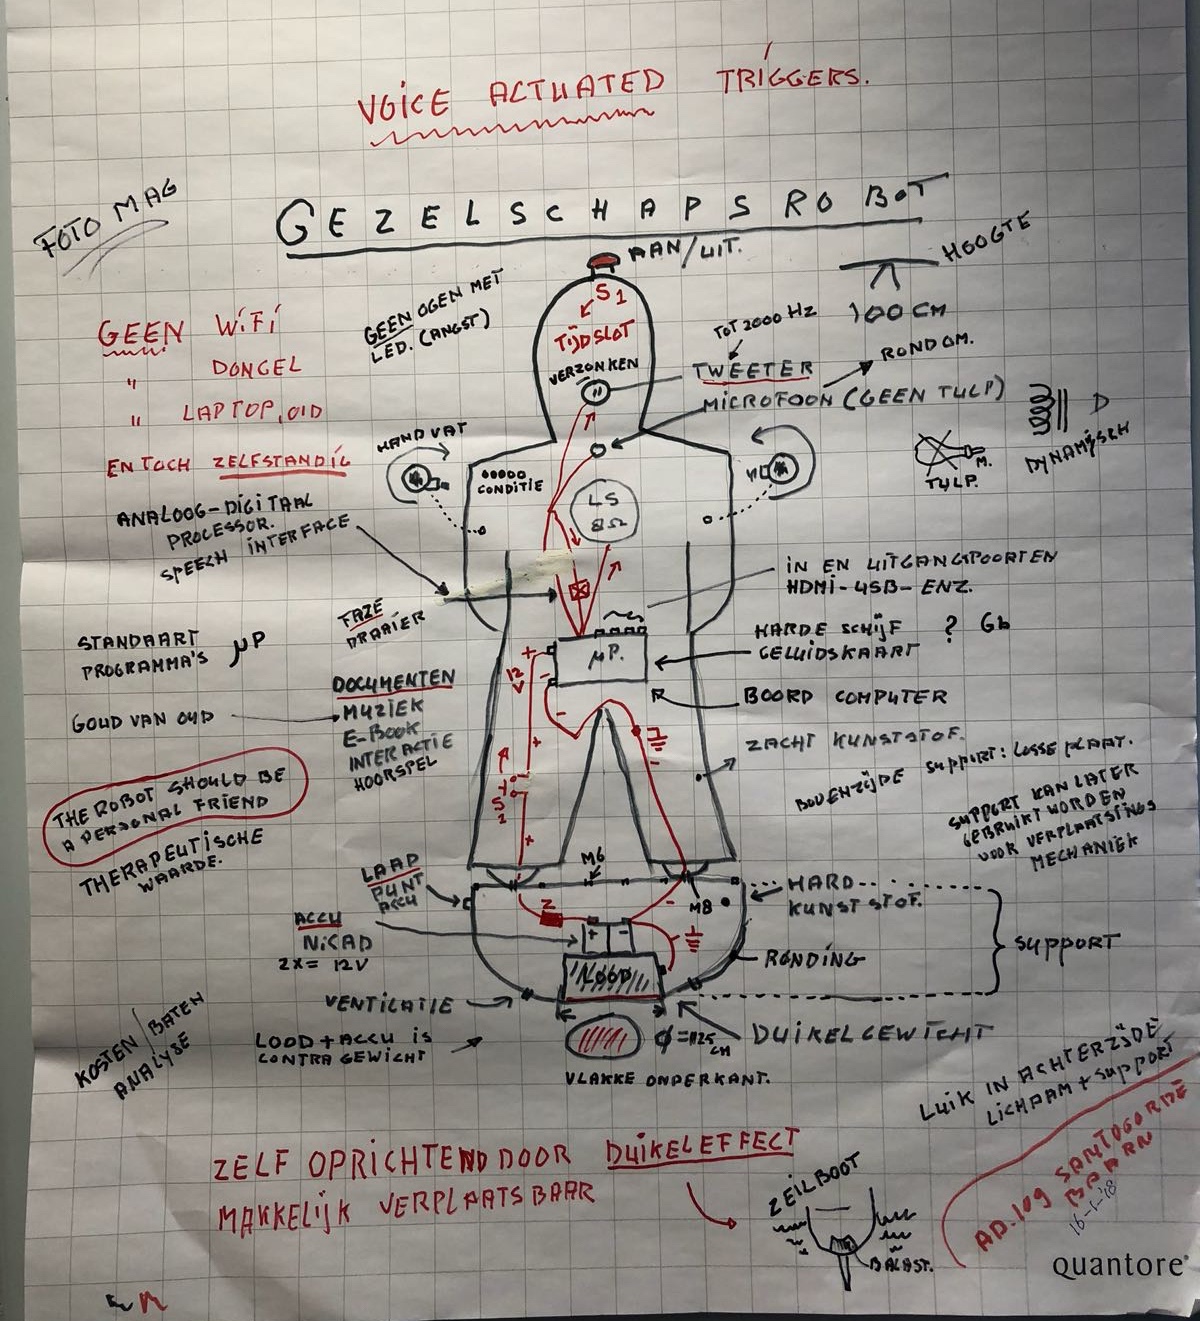 VOICE ACTUATED TRIGGERS.
FOTO MAG
GEZELSCHAPSROBOT
AAN/UIT.
HOOGTE
100 CM
GEEN WiFi
" DONGEL
" LAPTOP, OID
EN TOCH ZELFSTANDIG
GEEN OGEN MET
LED. (ANGST)
S1
TIJDSLOT
VERZONKEN
TOT 2000 Hz
TWEETER
RONDOM.
MICROFOON (GEEN TULP)
M.
TULP.
D
DYNAMISCH
HANDVAT
CONDITIE
LS
8Ω
ANALOOG-DIGITAAL
PROCESSOR.
SPEECH INTERFACE
FAZE
DRAAIER
IN EN UITGANGSPOORTEN
HDMI-USB-ENZ.
STANDAART
PROGRAMMA'S
μP
μP.
HARDE SCHIJF ? Gb
GELUIDSKAART
BOORD COMPUTER
+
12
V
-
GOUD VAN OUD
DOCUMENTEN
MUZIEK
E-BOOK
INTERACTIE
HOORSPEL
ZACHT KUNSTSTOF.
BOVENZIJDE SUPPORT: LOSSE PLAAT.
SUPPORT KAN LATER
GEBRUIKT WORDEN
VOOR VERPLAATSINGS
MECHANIEK
THE ROBOT SHOULD BE
A PERSONAL FRIEND
THERAPEUTISCHE
WAARDE.
S
2
+
+
-
-
M6
LAAD
PUNT
ACCU
M8
HARD
KUNSTSTOF.
SUPPORT
ACCU
NiCAD
2X = 12V
Z
+ -
LOOD
RONDING
VENTILATIE
LOOD + ACCU IS
CONTRA GEWICHT
DUIKELGEWICHT
VLAKKE ONDERKANT.
KOSTEN/BATEN
ANALYSE
LUIK IN ACHTERZIJDE
LICHAAM + SUPPORT
ZELF OPRICHTEND DOOR DUIKELEFFECT
MAKKELIJK VERPLAATSBAAR
ZEILBOOT
BALAST.
BAARN
quantore